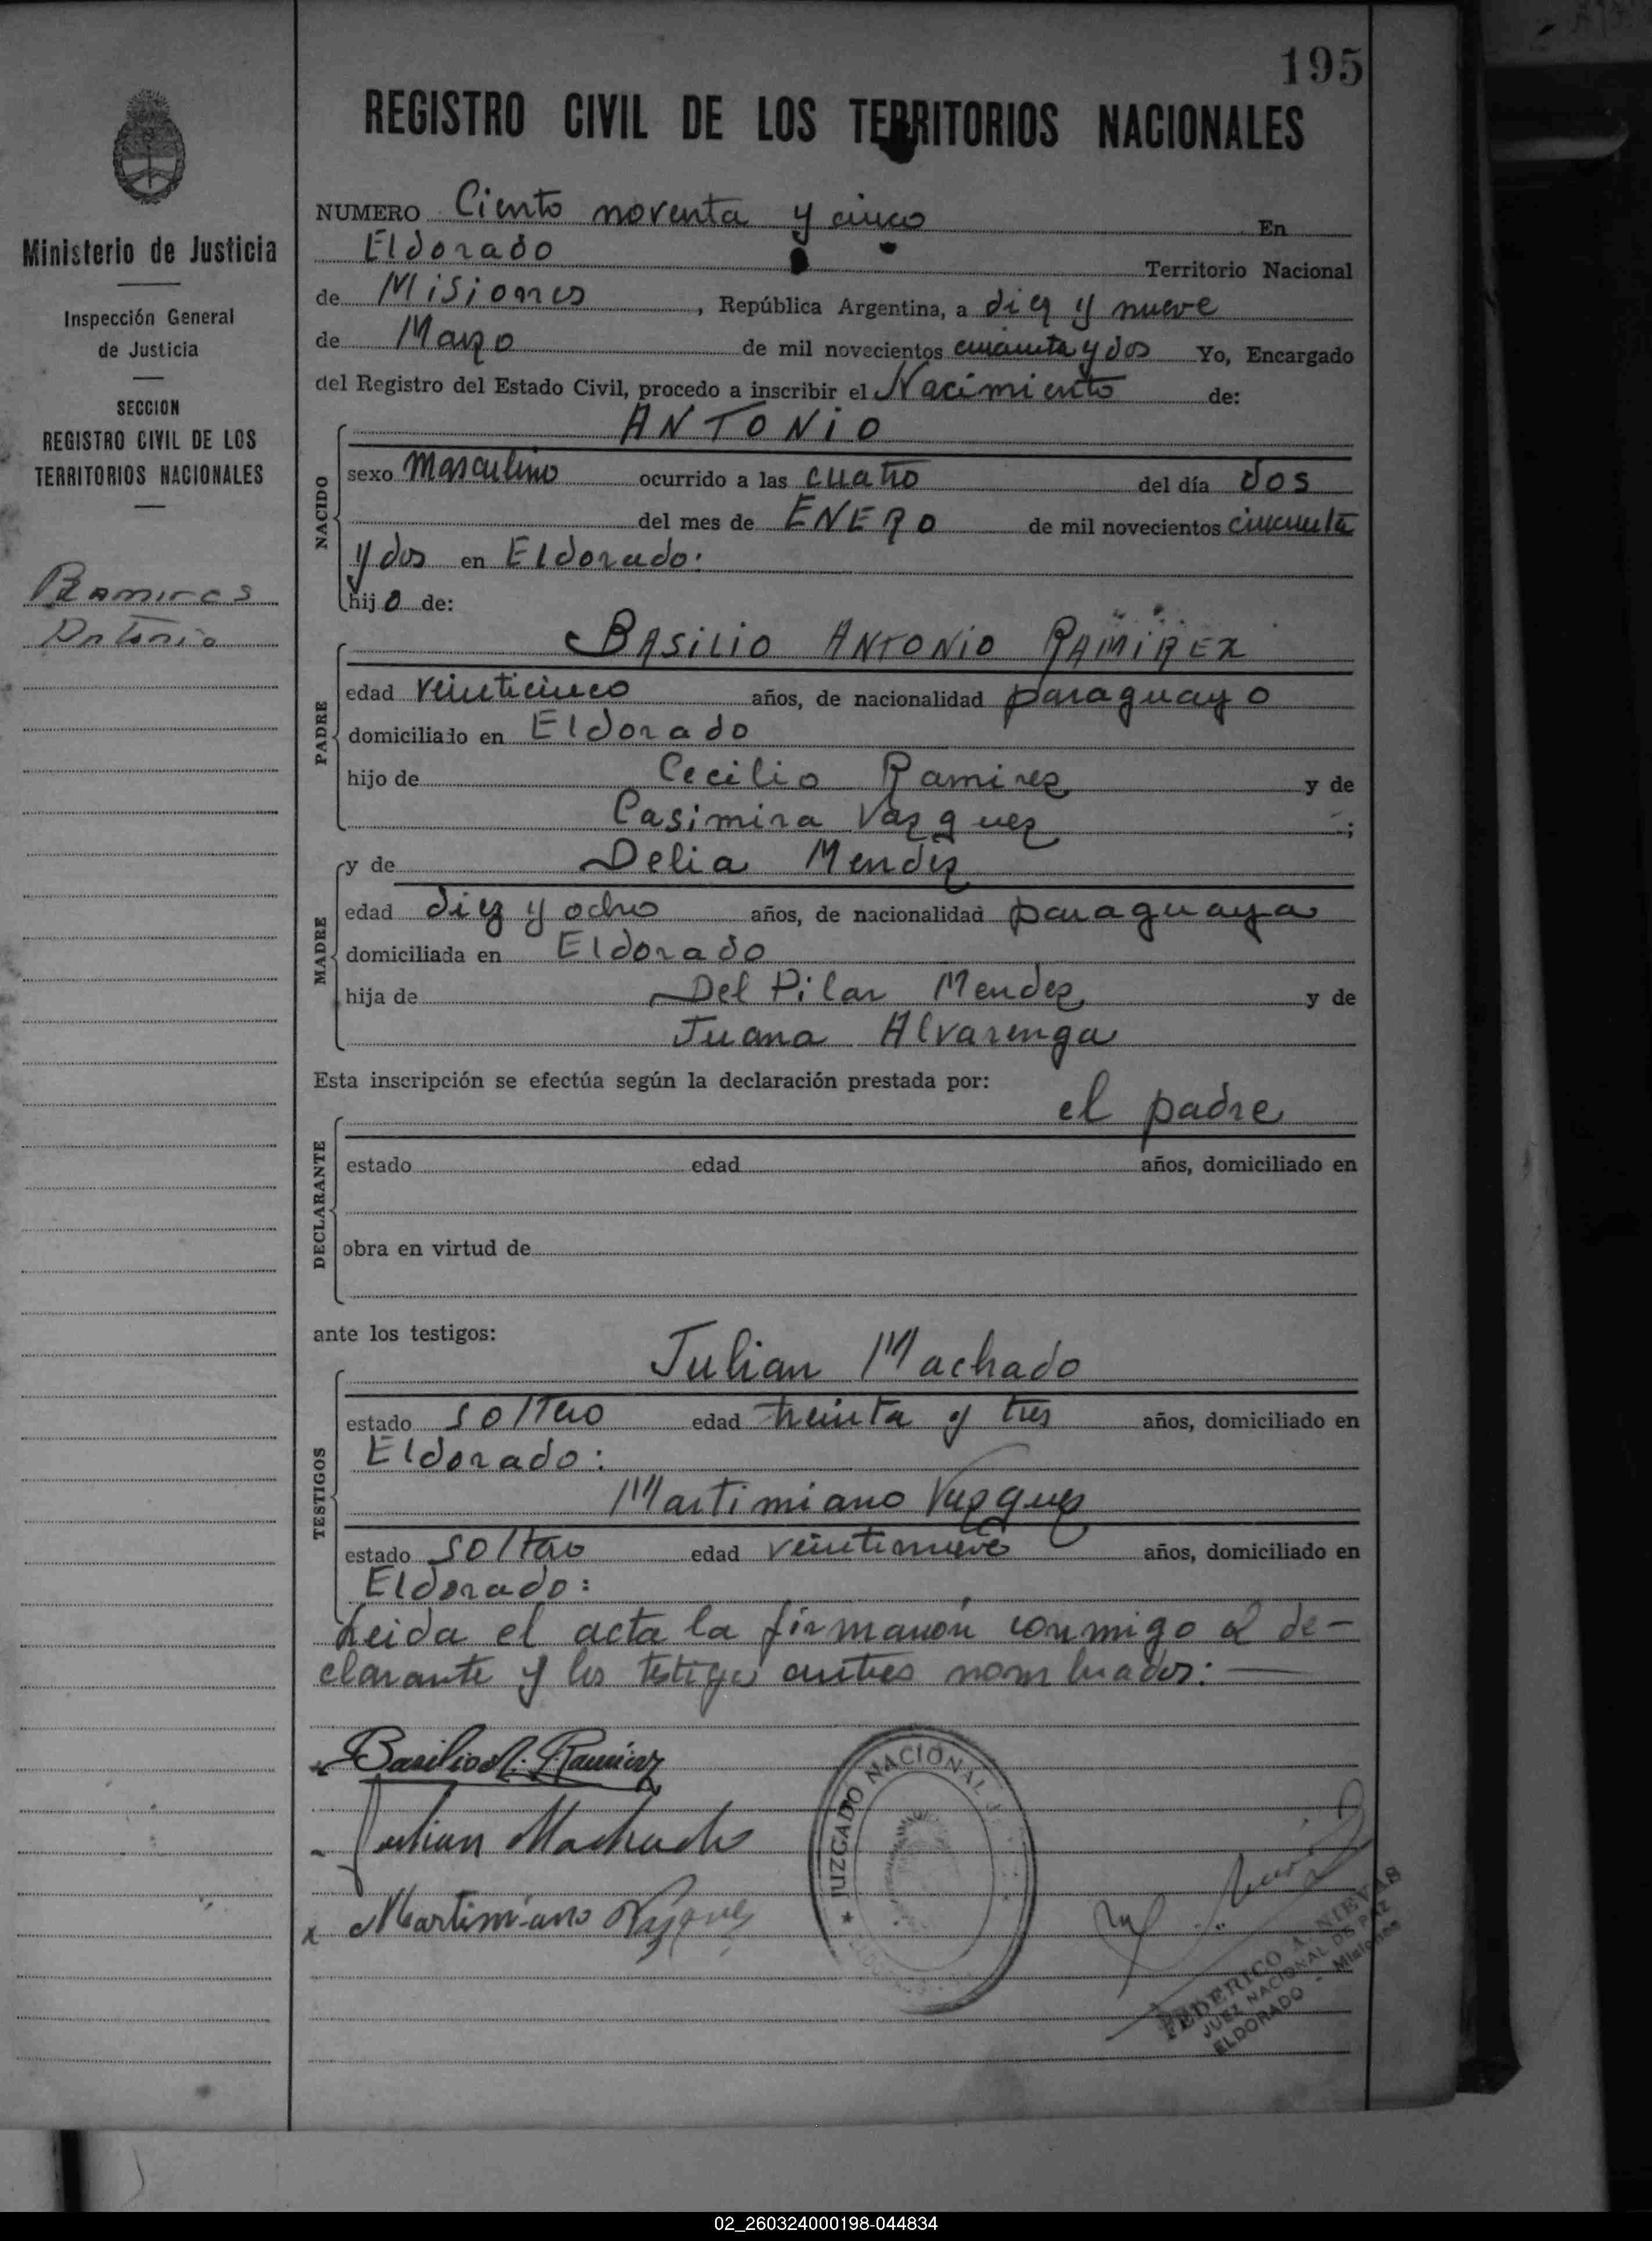 195
REGISTRO CIVIL DE LOS TERRITORIOS NACIONALES
Ministerio de Justicia
Inspección General
de Justicia
SECCION
REGISTRO CIVIL DE LOS
TERRITORIOS NACIONALES
Ramires
Antonio
NUMERO Ciento noventa y cinco En
Eldorado Territorio Nacional
de Misiones, República Argentina, a diez y nueve
de Marzo de mil novecientos cincuenta y dos Yo, Encargado
del Registro del Estado Civil, procedo a inscribir el Nacimiento de:
NACIDO
ANTONIO
sexo Masculino ocurrido a las cuatro del día dos
del mes de ENERO de mil novecientos cincuenta
y dos en Eldorado:
hijo de:
PADRE
BASILIO ANTONIO RAMIREZ
edad veinticinco años, de nacionalidad paraguayo
domiciliado en Eldorado
hijo de Cecilio Ramirez y de
Casimira Vazquez ;
MADRE
y de Delia Mendez
edad diez y ocho años, de nacionalidad paraguaya
domiciliada en Eldorado
hija de Del Pilar Mendez y de
Juana Alvarenga
Esta inscripción se efectúa según la declaración prestada por:
DECLARANTE
el padre
estado edad años, domiciliado en
obra en virtud de
ante los testigos:
TESTIGOS
Julian Machado
estado soltero edad treinta y tres años, domiciliado en
Eldorado:
Martimiano Vazquez
estado soltero edad veintinueve años, domiciliado en
Eldorado:
Leida el acta la firmaron conmigo el de-
clarante y los testigos antes nombrados:
Basilio A. Ramirez
Julian Machado
Martimiano Vazquez
JUZGADO NACIONAL
FEDERICO A. NIEVAS
JUEZ NACIONAL DE PAZ
ELDORADO - Misiones
02_260324000198-044834